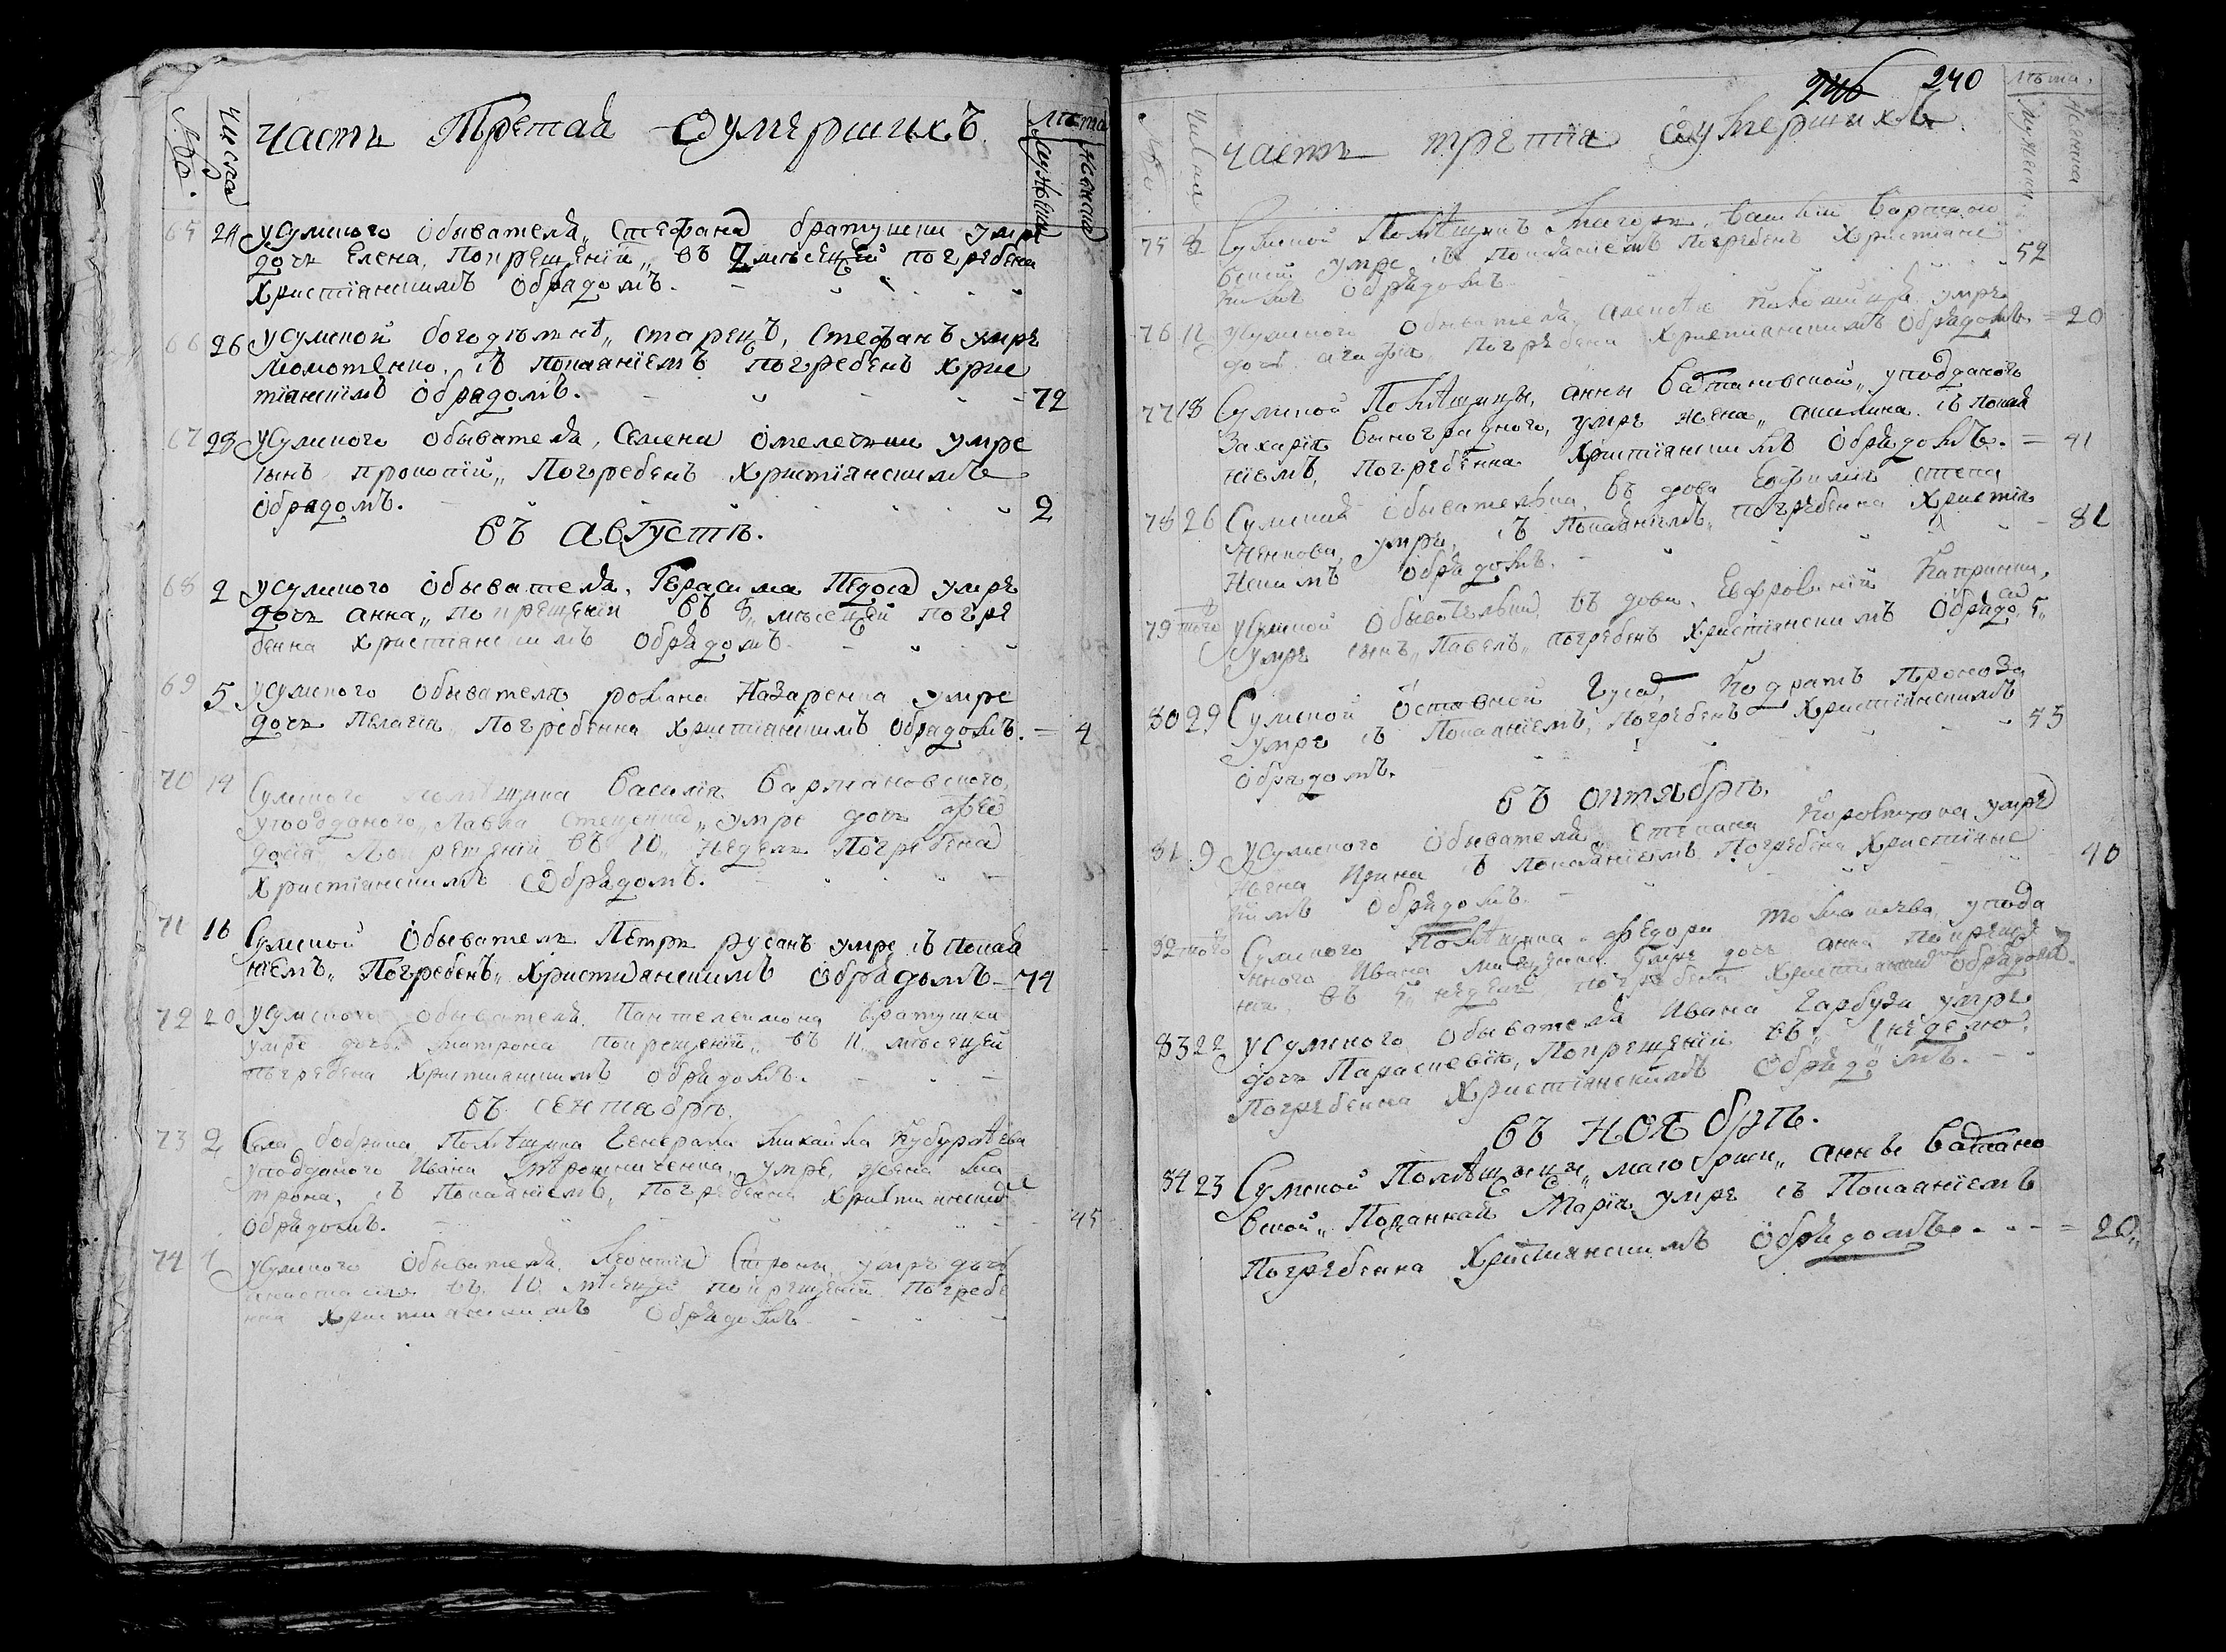 №ро. Числа Часть Третая Оумершихъ. Лѣта мужеска женска
65 24 Усумского Обывателя, Стефана братушки умре
дочь Елена, По крещенїй, въ 7 мѣсецей погребена
Христїанскимъ Обрядомъ.
66 26 Усумской богоделнѣ, старецъ, Стефанъ умре
съ Покаянїемъ погребенъ Хрис
тїанскимъ Обрядомъ. 72
67 28 Усумского обывателя, Семена Омелечки умре
сынъ прокопїй, Погребенъ Христїанскимъ
Обрядомъ. 2
Въ Августѣ.
68 2 Усумского Обывателя, Герасима Педоса умре
дочь Анна, по крещенїи въ 8, мѣсецей погре
бенна Христїанскимъ Обрядомъ.
69 5 Усумского Обывателя романа Назаренка умре
дочь Пелагїя, Погребенна Христїанскимъ Обрядомъ. 4
70 14 Сумского помѣщика Василїя Вармановского,
уподданого, Павла Стеценка, умре дочь Фео
досїя По крещенїй въ 10, недель Погребена
Христїанскимъ Обрядомъ.
71 16 Сумской Обыватель Петръ русанъ умре съ покая
нїемъ, Погребенъ, Христианскимъ Обрядомъ. 74
72 20 Усумского Обывателя Пантелеимона Братушки
умре дочь матрона по крещенїй, въ 11 мѣсецей
погребена Христианскимъ обрядомъ.
въ сентябрѣ.
73 2 Села бобрика Помѣщика Генерала михайла
уподданого Ивана Мѣрошниченка, умре, жена ма
трона, съ Покаянїемъ, Погребенна Христианским
Обрядомъ. 45
74 7 Усумского Обывателя Леонтїя умре дочь
въ 10 мѣсецей по крещенїй Погребе
нна Христианскимъ Обрядомъ
240
№ро Числа часть третїя Оумершихъ Лѣта. мужеска женска
75 8 Сумской Помѣщикъ
умре съ покаянїемъ погребенъ Христїанс
кимъ Обрядомъ 52
76 12 Усумского Обывателя, Алексѣя умре
дочь Агафїя, Погребена Христианскимъ Обрядомъ. 20
77 18 Сумской Помѣщицы, анны уподданого
Захарїя Виноградного, умре жена, акилина съ покая
нїемъ, погребенна Христїанскимъ Обрядомъ. 41
78 26 Сумская Обывателька, въдова Ефимия Степа
ненкова умре, съ Покаянїемъ, погребенна Христїа
нскимъ Обрядомъ. 81
79 того Усумской Обывательки, въдови, Евфросинїй
умре сынъ, Павелъ, погребенъ Христїанскимъ Обрядо. 5,
80 29 Сумской Кодратъ
умре съ Покаянїемъ, Погребенъ Христїанскимъ
Обрядомъ. 55
Въ Октябрѣ.
81 9 Усумского Обывателя, Степана умре
жена Ирина съ Покаянїемъ Погребена Христїанс
кимъ Обрядомъ. 40
82 того Сумского Помѣщика Федора упода
нного Ивана умре дочь анна по креще
нїи въ 5, недель, погребена Христианским Обрядомъ.
83 22 Усумского, Обывателя Ивана Гарбуза умре
дочь Параскевїя, По крещенїй въ, 1 неделю,
Погребенна Христїанскимъ Обрядомъ.
Въ Ноябрѣ.
84 23 Сумской Помѣщицы, маиорши, Анны
Подданная Марїя умре съ Покаянїемъ
Погребенна Христианскимъ Обрядомъ. 20,,